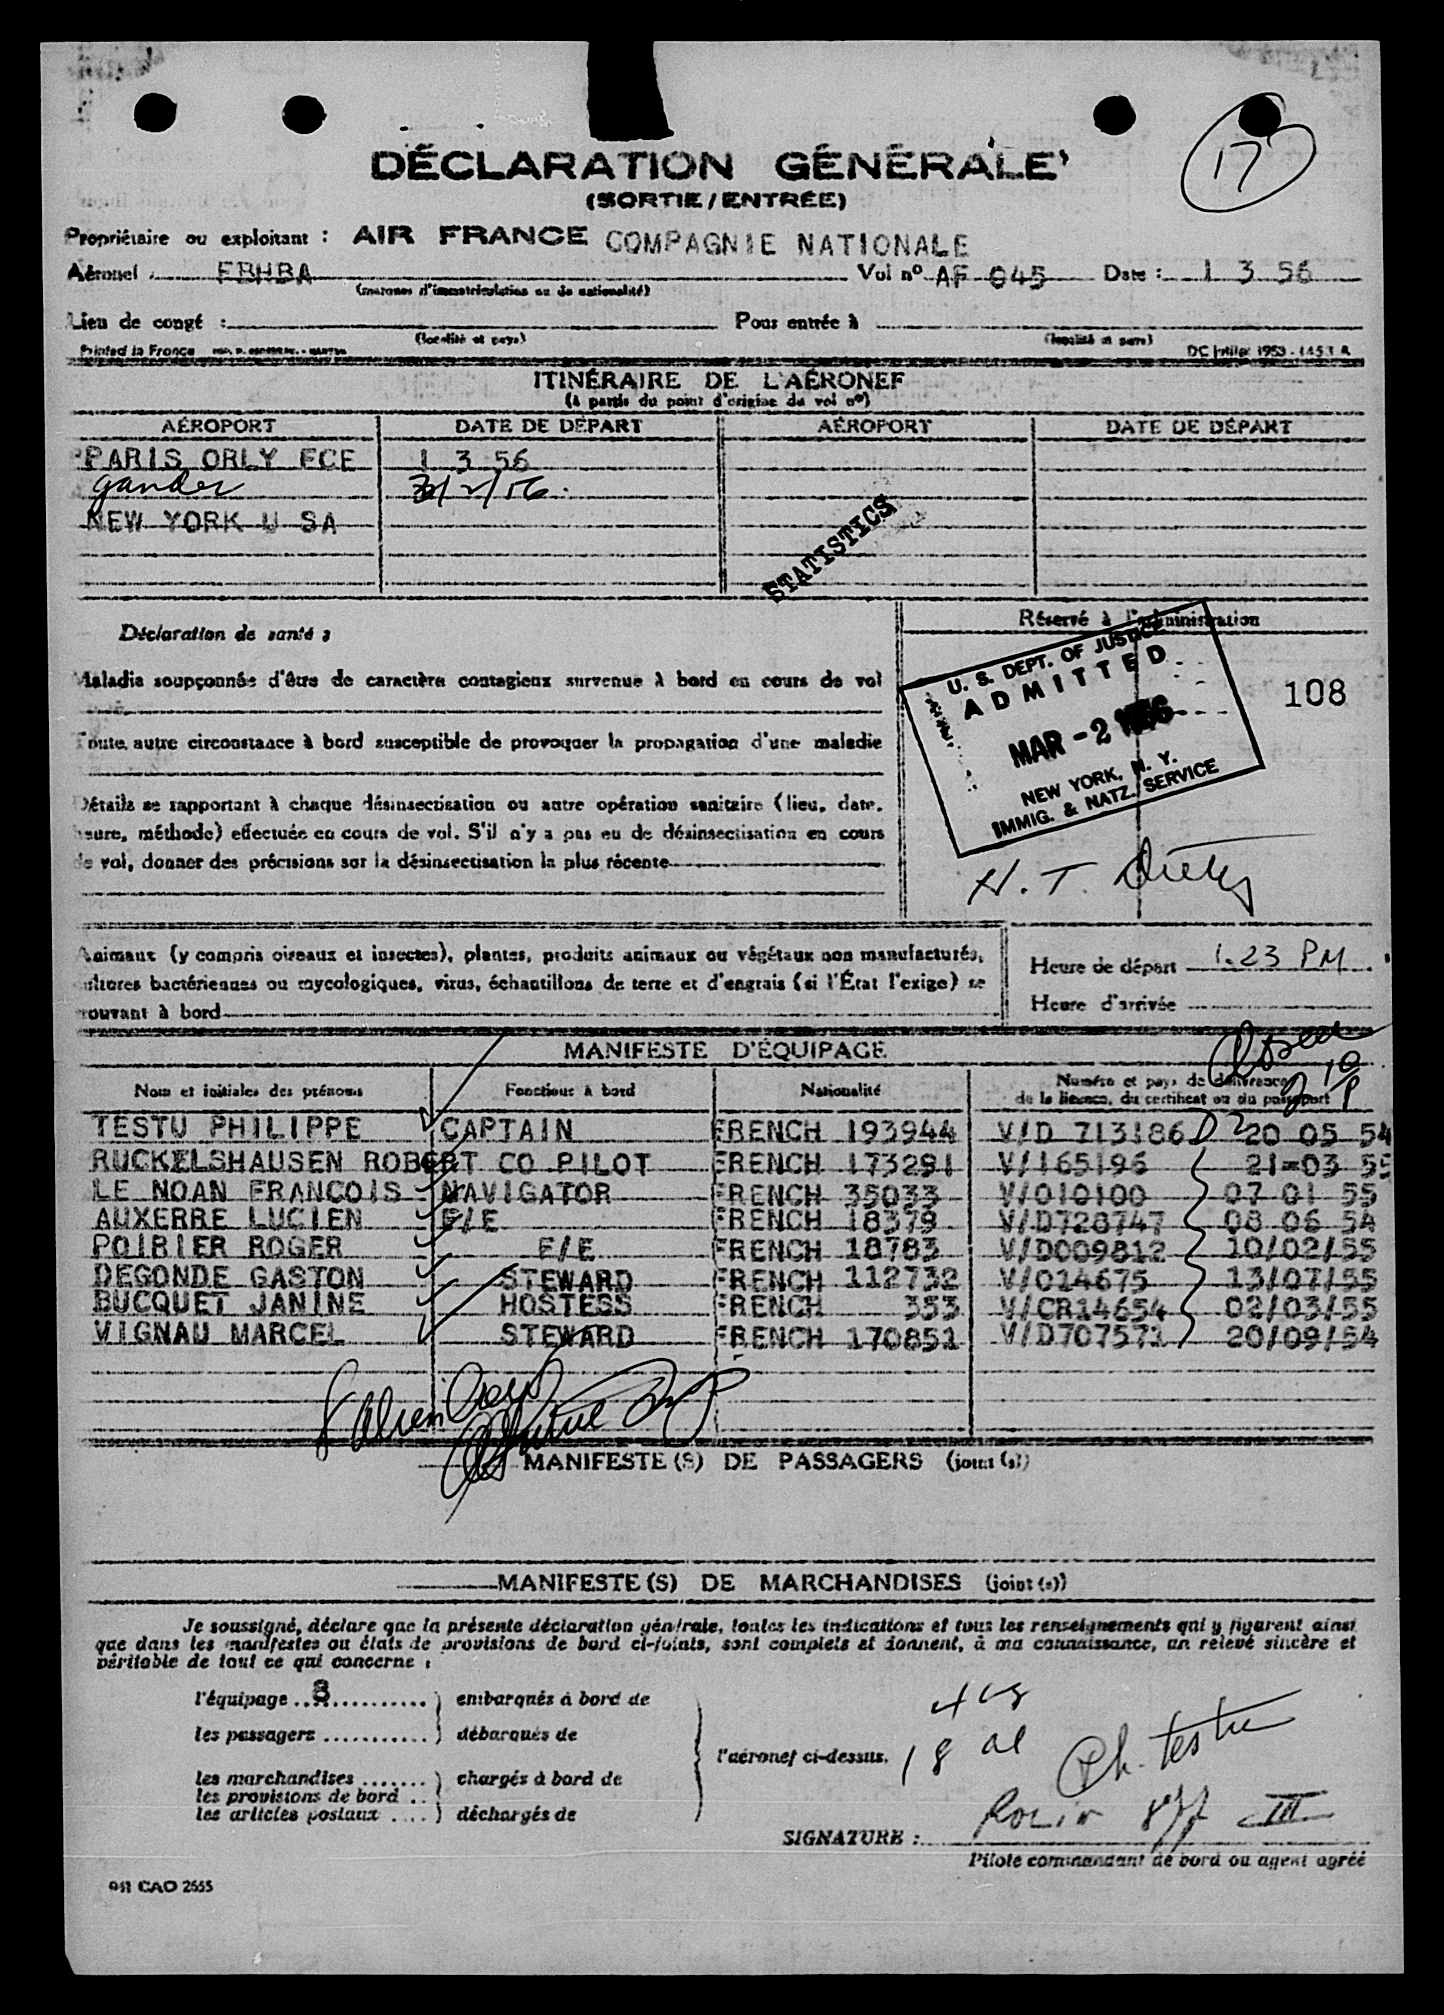 17
DÉCLARATION GÉNÉRALE
(SORTIE / ENTRÉE)
Propriétaire ou exploitant : AIR FRANCE COMPAGNIE NATIONALE
Aéronef FBHBA Vol nº AF 045 Date : 1 3 56
(marques d'immatriculation ou de nationalité)
Lieu de congé : Pour entrée à
(localité et pays) (localité et pays)
Printed in France DC juillet 1953 - 1453 A
ITINÉRAIRE DE L'AÉRONEF
(à partir du point d'origine du vol nº)
AÉROPORT DATE DE DÉPART AÉROPORT DATE DE DÉPART
PARIS ORLY FCE 1 3 56
gander 2/56
NEW YORK U SA
STATISTICS
Déclaration de santé :
Réservé à l'administration
Maladie soupçonnée d'être de caractère contagieux survenue à bord en cours de vol
Toute autre circonstance à bord susceptible de provoquer la propagation d'une maladie
Détails se rapportant à chaque désinsectisation ou autre opération sanitaire (lieu, date,
heure, méthode) effectuée en cours de vol. S'il n'y a pas eu de désinsectisation en cours
de vol, donner des précisions sur la désinsectisation la plus récente
U. S. DEPT. OF JUSTICE
ADMITTED
MAR - 2 1956
NEW YORK, N. Y.
IMMIG. & NATZ. SERVICE
108
H. T.
Animaux (y compris oiseaux et insectes), plantes, produits animaux ou végétaux non manufacturés,
cultures bactériennes ou mycologiques, virus, échantillons de terre et d'engrais (si l'État l'exige) se
trouvant à bord
Heure de départ 1.23 PM
Heure d'arrivée
MANIFESTE D'ÉQUIPAGE
Nom et initiales des prénoms Fonctions à bord Nationalité Numéro et pays de délivrance
de la licence, du certificat ou du passeport
TESTU PHILIPPE CAPTAIN FRENCH 193944 V/D 713186 20 05 54
RUCKELSHAUSEN ROBERT CO PILOT FRENCH 173291 V/165196 21-03 55
LE NOAN FRANCOIS NAVIGATOR FRENCH 35033 V/010100 07 01 55
AUXERRE LUCIEN F/E FRENCH 18379 V/D728747 08 06 54
POIRIER ROGER F/E FRENCH 18783 V/D009812 10/02/55
DEGONDE GASTON STEWARD FRENCH 112732 V/014675 13/07/55
BUCQUET JANINE HOSTESS FRENCH 353 V/CR14654 02/03/55
VIGNAU MARCEL STEWARD FRENCH 170851 V/D707571 20/09/54
MANIFESTE (S) DE PASSAGERS (joint (s))
MANIFESTE (S) DE MARCHANDISES (joint (s))
Je soussigné, déclare que la présente déclaration générale, toutes les indications et tous les renseignements qui y figurent ainsi
que dans les manifestes ou états de provisions de bord ci-joints, sont complets et donnent, à ma connaissance, un relevé sincère et
véritable de tout ce qui concerne :
l'équipage .. 8 .......... ) embarqués à bord de
les passagers ........... ) débarqués de
l'aéronef ci-dessus.
les marchandises ....... ) chargés à bord de
les provisions de bord ..
les articles postaux .... ) déchargés de
18 al
Ph. testu
III
SIGNATURE :
Pilote commandant de bord ou agent agréé
941 CAO 2555